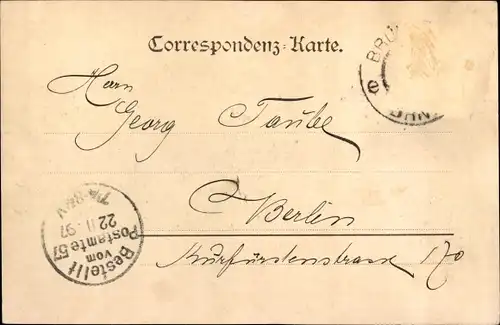 Correspondenz-Karte.
BRÜ
BHN
e
Herrn
Georg Taube
Berlin
Kurfürstenstrasse 170
Bestellt
vom
Postamte 57
22 11. 97